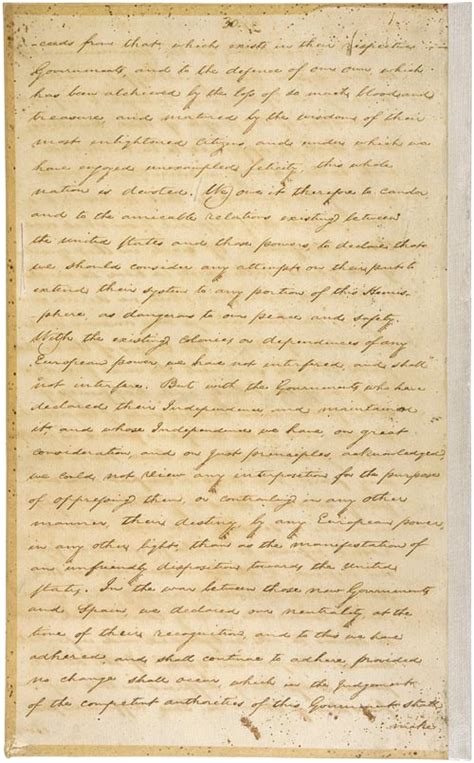 -ceeds from that, which exists in their respective
Governments, and to the defence of our own, which
has been atchieved by the loss of so much blood and
treasure, and matured by the wisdom of their
most enlightened citizens, and under which we
have enjoyed unexampled felicity, this whole
nation is devoted. We owe it therefore to candor,
and to the amicable relations existing between
the united States and those powers, to declare, that
we should consider any attempt on their part to
extend their system to any portion of this Hemis-
phere, as dangerous to our peace and safety.
With the existing Colonies or dependencies of any
European power, we had not interfered, and shall
not interfere. But with the Governments who have
declared their Independence, and maintained
it, and whose Independence we have, on great
consideration, and on just principles, acknowledged,
we could not view any interposition for the purpose
of oppressing them, or controuling in any other
manner, their destiny, by any European power,
in any other light, than as the manifestation of
an unfriendly disposition towards the United
States. In the war between those new Governments
and Spain we declared our neutrality, at the
time of their recognition, and to this we have
adhered, and shall continue to adhere, provided
no change shall occur, which in the Judgement
of the competent authorities of this Government shall
make